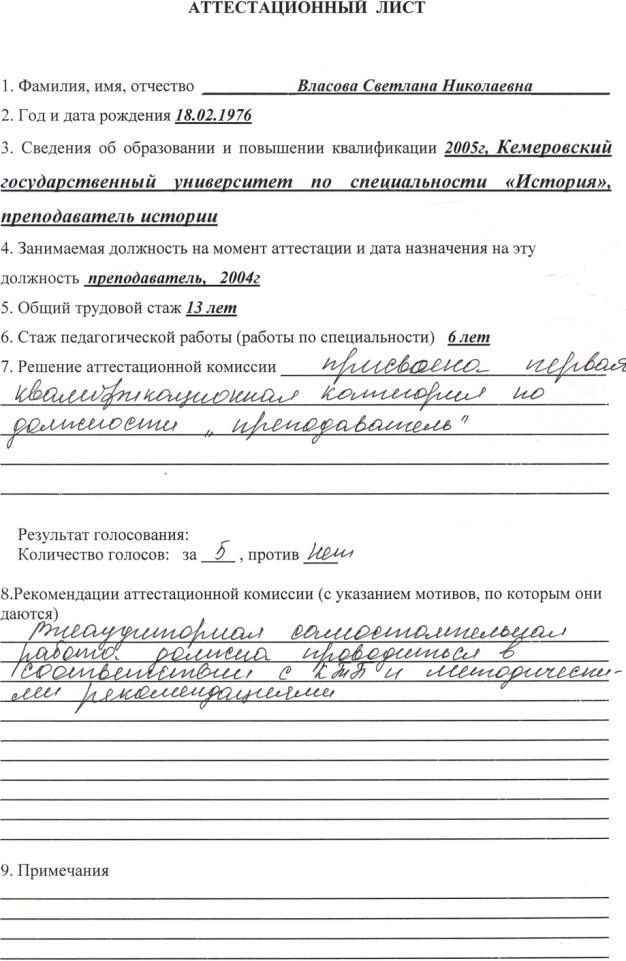 АТТЕСТАЦИОННЫЙ ЛИСТ
1. Фамилия, имя, отчество Власова Светлана Николаевна
2. Год и дата рождения 18.02.1976
3. Сведения об образовании и повышении квалификации 2005г, Кемеровский
государственный университет по специальности «История»,
преподаватель истории
4. Занимаемая должность на момент аттестации и дата назначения на эту
должность преподаватель, 2004г
5. Общий трудовой стаж 13 лет
6. Стаж педагогической работы (работы по специальности) 6 лет
7. Решение аттестационной комиссии присвоена первая
квалификационная категория по
должности „преподаватель"
Результат голосования:
Количество голосов: за 5 , против нет
8.Рекомендации аттестационной комиссии (с указанием мотивов, по которым они
даются)
Внеаудиторная самостоятельная
работа должна проводиться в
соответствии с КТП и методически-
ми рекомендациями
9. Примечания